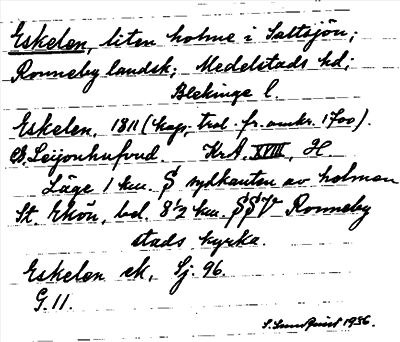 Eskelen, liten holme i Saltsjön;
Ronneby landsk; Medelstads hd;
Blekinge l.
Eskelen, 1811 (kop. trol. fr. omkr. 1700).
C.G. Leijonhufvud. KrA. XVIII, H.
Läge 1 km. S sydkanten av holmen
St. Ekön, bel. 8 1/2 km. SSV Ronneby
stads kyrka.
Eskelen ek, Sj. 96.
G. 11.
S. Sundquist 1936.